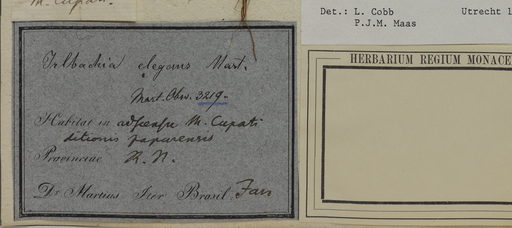 M. Cupati.
Det.: L. Cobb Utrecht 1
P.J.M. Maas
HERBARIUM REGIUM MONACE
Irlbachia elegans Mart.
Mart. Obs. 3219.
Habitat in adscensu M. Cupati
ditionis japurensis
Provinciae R. N.
Dr. Martius Iter Brasil. Jan